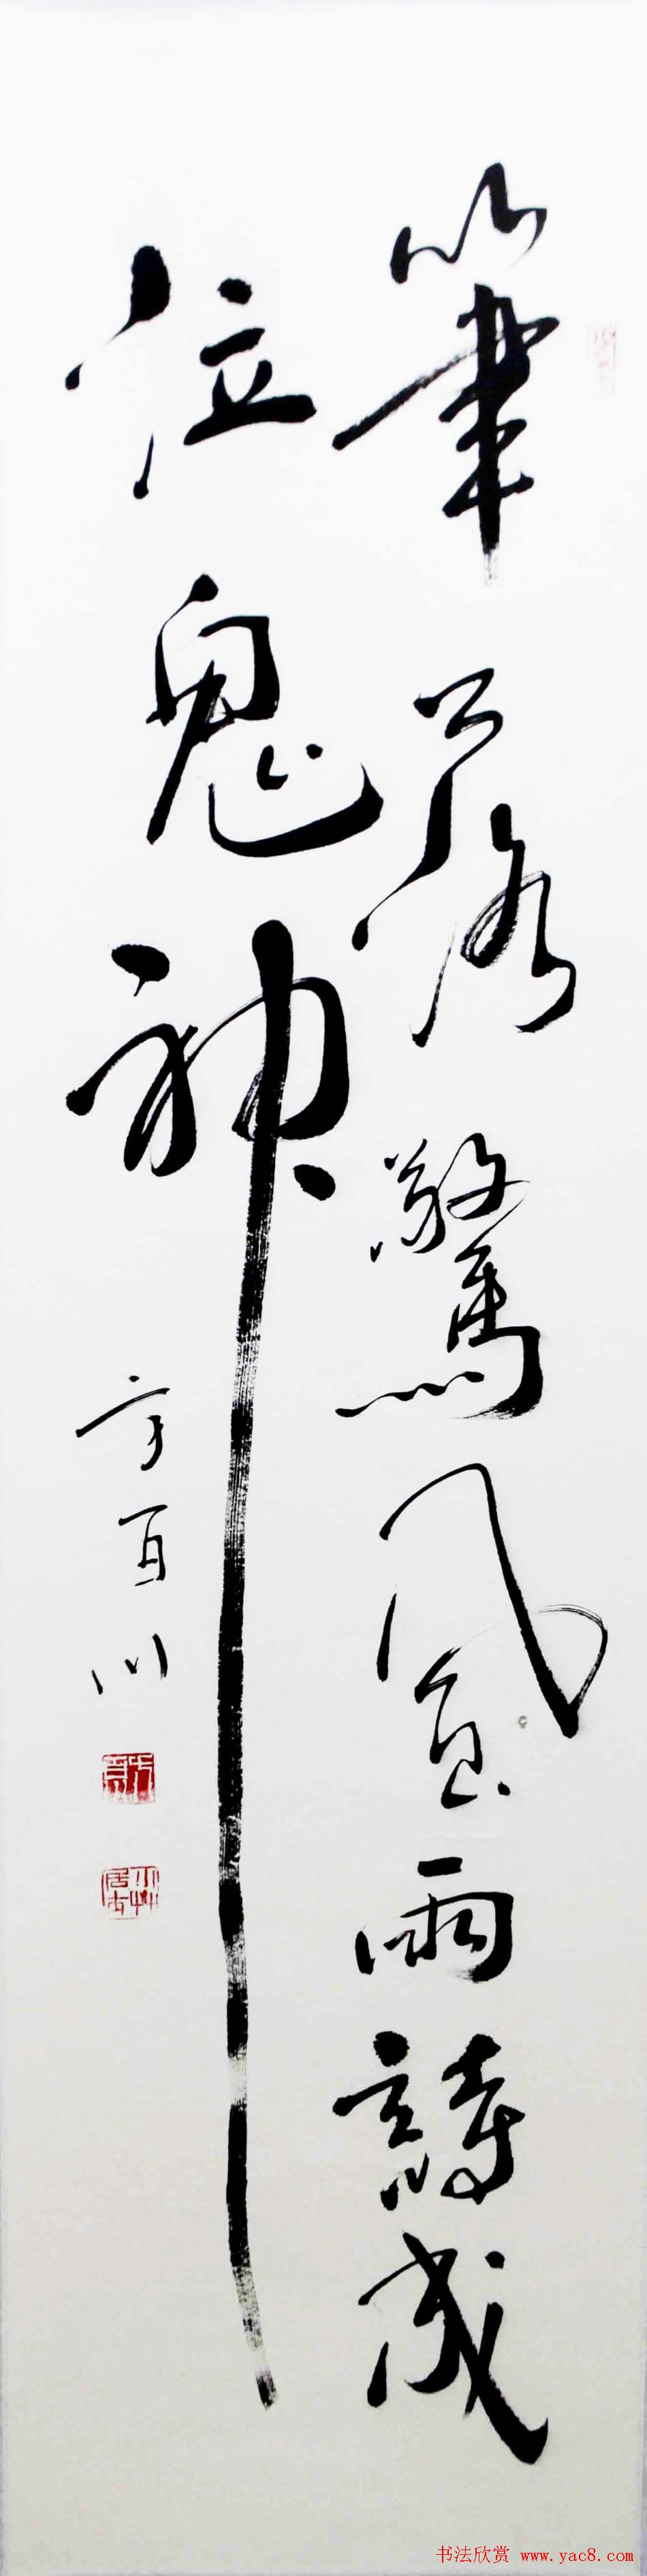 筆落驚風雨詩成
泣鬼神
方百川
书法欣赏 www.yac8.com